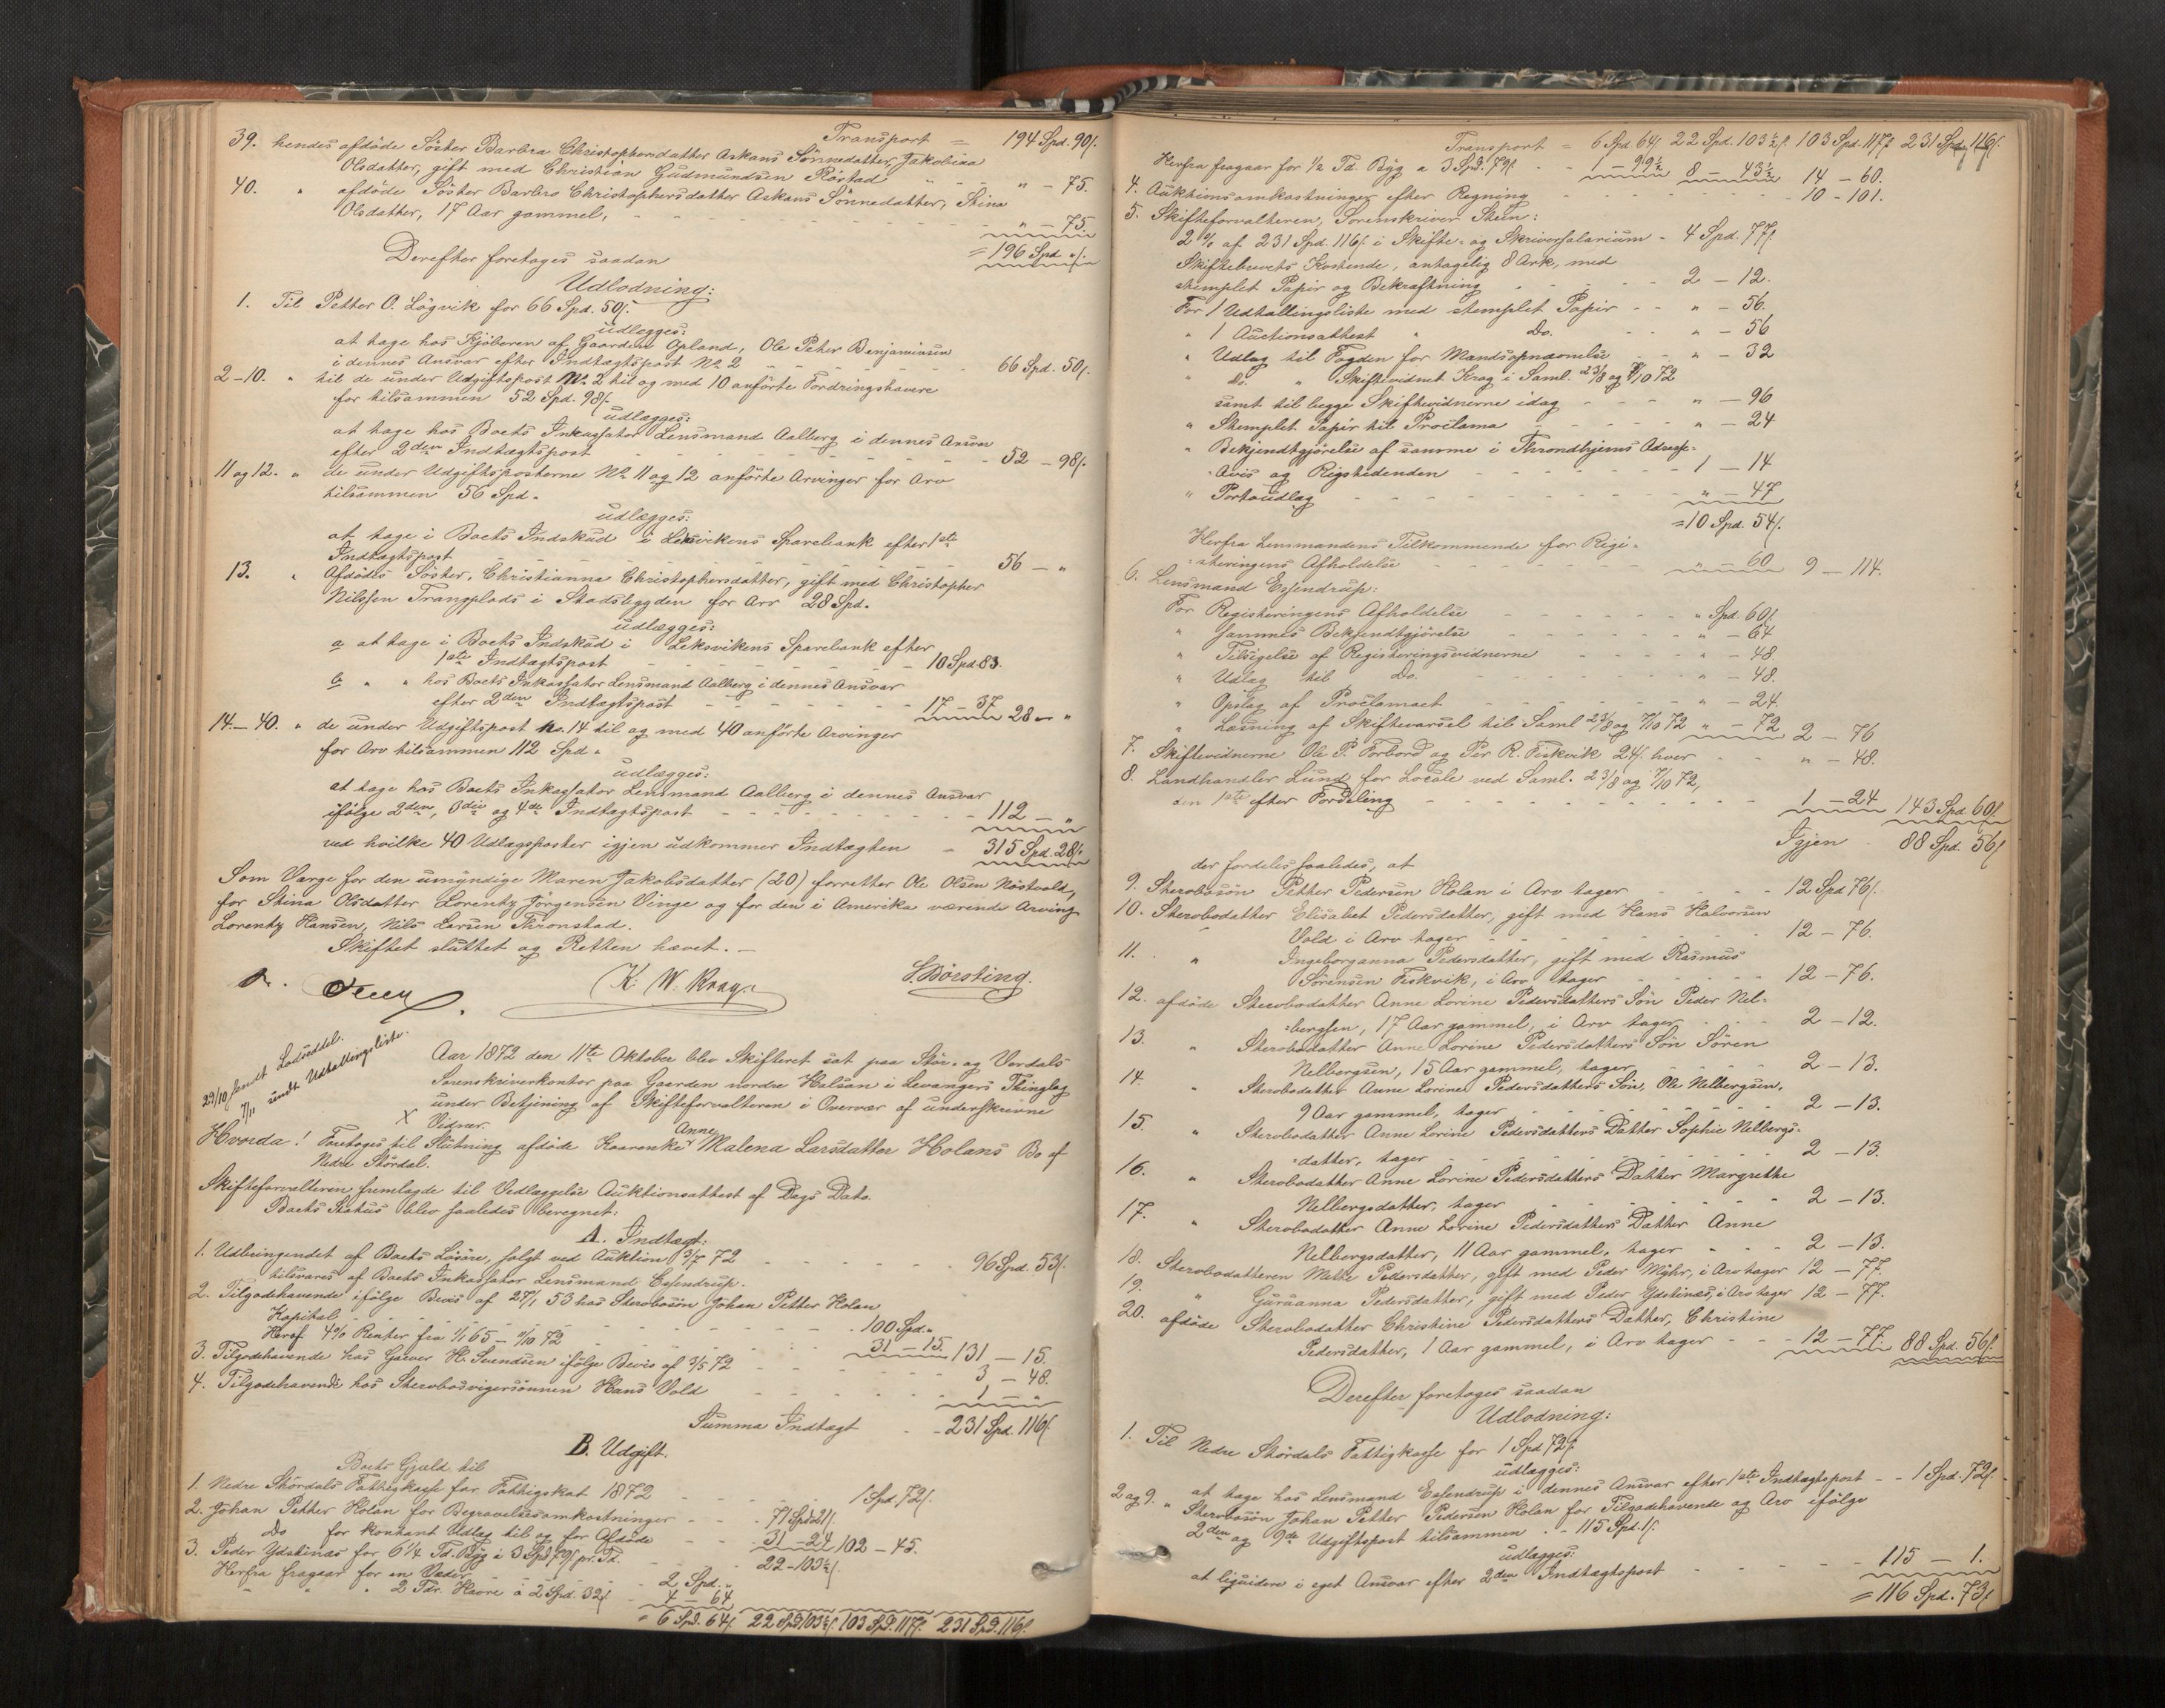 Transport = 194 Spd. 90 s.
39. hendes afdöde Söster Barbra Christophersdatter Askans Sönnedatter, Jakobina
Olsdatter, gift med Christian Gudmundsen Röstad " - 75.
40. " afdöde Söster Barbro Christophersdatter Askans Sönnedatter, Stina
Olsdatter, 17 Aar gammel, " - 75.
= 196 Spd. " s.
Derefter foretoges saadan
Udlodning:
1. Til Petter O. Lögvik for 66 Spd. 50 s.
udlægges:
at tage hos Kjöberen af Gaarden Opland, Ole Peter Benjaminsen
i dennes Ansvar efter Indtægtspost No 2 66 Spd. 50 s.
2-10. " til de under Udgiftspost No 2 til og med 10 anförte Fordringshavere
for tilsammen 52 Spd. 98 s.
udlægges:
at tage hos Boets Inkassator Lensmand Aalberg i dennes Ansvar
efter 2den Indtægtspost 52 - 98 s.
11 og 12. " de under Udgiftsposterne No 11 og 12 anförte Arvinger for Arv
tilsammen 56 Spd.
udlægges:
at tage i Boets Indskud i Leksvikens Sparebank efter 1ste
Indtægtspost 56 - "
13. " Afdödes Söster, Christianna Christophersdatter, gift med Christopher
Nilssen Trangplads i Stadsbygden for Arv 28 Spd.
udlægges:
a at tage i Boets Indskud i Leksvikens Sparebank efter
1ste Indtægtspost 10 Spd. 83.
b " " hos Boets Inkassator Lensmand Aalberg i dennes Ansvar
efter 2den Indtægtspost 17 - 37 28 - "
14-40. " de under Udgiftspost No. 14 til og med 40 anförte Arvinger
for Arv tilsammen 112 Spd.
udlægges:
at tage hos Boets Inkassator Lensmand Aalberg i dennes Ansvar
ifölge 2den, 3die og 4de Indtægtspost 112 - "
ved hvilke 40 Udlægsposter igjen udkommer Indtægten - 315 Spd. 28 s.
Som Værge for den umyndige Maren Jakobsdatter (20) forretter Ole Olsen Nöstvold,
for Stina Olsdatter Lorentz Jörgensen Vinge og for den i Amerika værende Arving
Lorentz Hansen, Nils Larsen Thronstad.
Skiftet sluttet og Retten hævet. -
K. W. Krag. S. Börsting.
29/10 sendt Lodseddel.
7/11 sendt Udtallingsliste.
Aar 1872 den 11te Oktober blev Skifteret sat paa Stör- og Verdals
Sorenskriverkontor paa Gaarden nordre Halsan i Levangers Thinglag
under Betjening af Skifteforvalteren i Overvær af underskrivne
X Vidner.
Hvorda! Foretoges til Slutning afdöde Kaarenke Anne Malena Larsdatter Holans Bo af
Nedre Stördal.
Skifteforvalteren fremlagde til Vedlæggelse Auktionsattest af Dags Dato.
Boets Status blev saaledes beregnet:
A. Indtægt:
1. Udbringendet af Boets Lösöre, solgt ved Auktion 3/7 72 96 Spd. 53 s.
tilsvares af Boets Inkassator Lensmand Essendrup.
2. Tilgodehavende ifölge Bevis af 27/1 53 hos Stervbosön Johan Petter Holan
Kapital 100 Spd. "
Heraf 4% Renter fra 1/1 65 - 11/10 72 31 - 15. 131 - 15.
3. Tilgodehavende hos Garver H. Svendsen ifölge Bevis af 3/5 72 3 - 48.
4. Tilgodehavende hos Stervbosvigersönnen Hans Vold 1 - "
Summa Indtægt - 231 Spd. 116 s.
B. Udgift.
Boets Gjæld til
1. Nedre Stördals Fattigkasse for Fattigskat 1872 1 Spd. 72 s.
2. Johan Petter Holan for Begravelsesomkostninger 71 Spd. 21 s.
Do for kontant Udlæg til og for Afdöde 31 - 24 102 - 45.
3. Peder Ydstinæs for 6 1/4 Td. Byg à 3 Spd. 79 s. pr. Td. 22 - 103 1/2 s.
Herfra fragaar for en Væder 2 Spd. "
" " " 2 Tdr. Havre à 2 Spd. 32 s. 4 - 64
= 6 Spd. 64 s. 22 Spd. 103 1/2 s. 103 Spd. 117 s. 231 Spd. 116 s.
Transport = 6 Spd. 64 s. 22 Spd. 103 1/2 s. 103 Spd. 117 s. 231 Spd. 116 s.
Herfra fragaar for 1/2 Td. Byg a 3 Spd. 79 s. 1 - 99 1/2 8 - 43 1/2 14 - 60.
4. Auktionsomkostninger efter Regning 10 - 101.
5. Skifteforvalteren, Sorenskriver Steen:
2 % af 231 Spd. 116 s. i Skifte- og Skriversalarium - 4 Spd. 77 s.
Skiftebrevets Kostende, antagelig 8 Ark, med
stemplet Papir og Bekræftning 2 - 12.
For 1 Udtallingsliste med stemplet Papir " - 56.
" 1 Auctionsattest " Do. " - 56
" Udlæg til Fogden for Mandsopnævnelse " - 32
" Do. " Skiftevidnet Krag i Saml. 23/8 og 7/10 72
samt til begge Skiftevidnerne idag " - 96
" Stemplet Papir til Proclama " - 24
" Bekjendtgjörelse af samme i Throndhjems Adresse-
-Avis og Rigstidenden 1 - 14
" Portoudlæg " - 47
= 10 Spd. 54 s.
Herfra Lensmandens Tilkommende for Regi-
-streringens Afholdelse " - 60 9 - 114.
6. Lensmand Essendrup:
For Registreringens Afholdelse " Spd. 60 s.
" sammes Bekjendtgjörelse " - 64
" Tilsigelse af Registreringsvidnerne " - 48
" Udlæg til Do. " - 48.
" Opslag af Proclamaet " - 24.
" Læsning af Skiftevarsel til Saml. 23/8 og 7/10 72 " - 72 2 - 76
7. Skiftevidnerne Ole P. Forbord og Per R. Fiskvik 24 s. hver " - 48.
8. Landhandler Lund for Locale ved Saml. 23/8 og 7/10 72,
den 1ste efter Fordeling 1 - 24 143 Spd. 60 s.
Igjen - 88 Spd. 56 s.
der fordeles saaledes, at
9. Stervbosön Petter Pedersen Holan i Arv tager 12 Spd. 76 s.
10. Stervbodatter Elisabet Pedersdatter, gift med Hans Halvorsen
Vold i Arv tager 12 - 76.
11. " Ingeborganna Pedersdatter, gift med Rasmus
Sörensen Fiskvik, i Arv tager 12 - 76.
12. afdöde Stervbodatter Anne Lorine Pedersdatters Sön Peder Nel-
-bergsen, 17 Aar gammel, i Arv tager 2 - 12.
13. " Stervbodatter Anne Lorine Pedersdatters Sön Sören
Nelbergsen, 15 Aar gammel, tager 2 - 13.
14. " Stervbodatter Anne Lorine Pedersdatters Sön, Ole Nelbergsen,
9 Aar gammel, tager 2 - 13.
15. " Stervbodatter Anne Lorine Pedersdatters Datter Sophie Nelbergs-
-datter, tager 2 - 13.
16. " Stervbodatter Anne Lorine Pedersdatters Datter Margrethe
Nelbergsdatter, tager 2 - 13.
17. " Stervbodatter Anne Lorine Pedersdatters Datter Anne
Nelbergsdatter, 11 Aar gammel, tager 2 - 13.
18. Stervbodatteren Mette Pedersdatter, gift med Peder Myhr, i Arv tager 12 - 77.
19. " Guruanna Pedersdatter, gift med Peder Ydstinæs, i Arv tager 12 - 77.
20. afdöde Stervbodatter Christine Pedersdatters Datter, Christine
Pedersdatter, 1 Aar gammel, i Arv tager 12 - 77. 88 Spd. 56 s.
Derefter foretoges saadan
Udlodning:
1. Til Nedre Stördals Fattigkasse for 1 Spd. 72 s.
udlægges:
at tage hos Lensmand Essendrup i dennes Ansvar efter 1ste Indtægtspost - - 1 Spd. 72 s.
2 og 9. " Stervbosön Johan Petter Pedersen Holan for Tilgodehavende og Arv ifölge
2den og 9de Udgiftspost tilsammen - - 115 Spd. 1 s.
udlægges:
at liquidere i eget Ansvar efter 2den Indtægtspost 115 - 1.
= 116 Spd. 73 s.